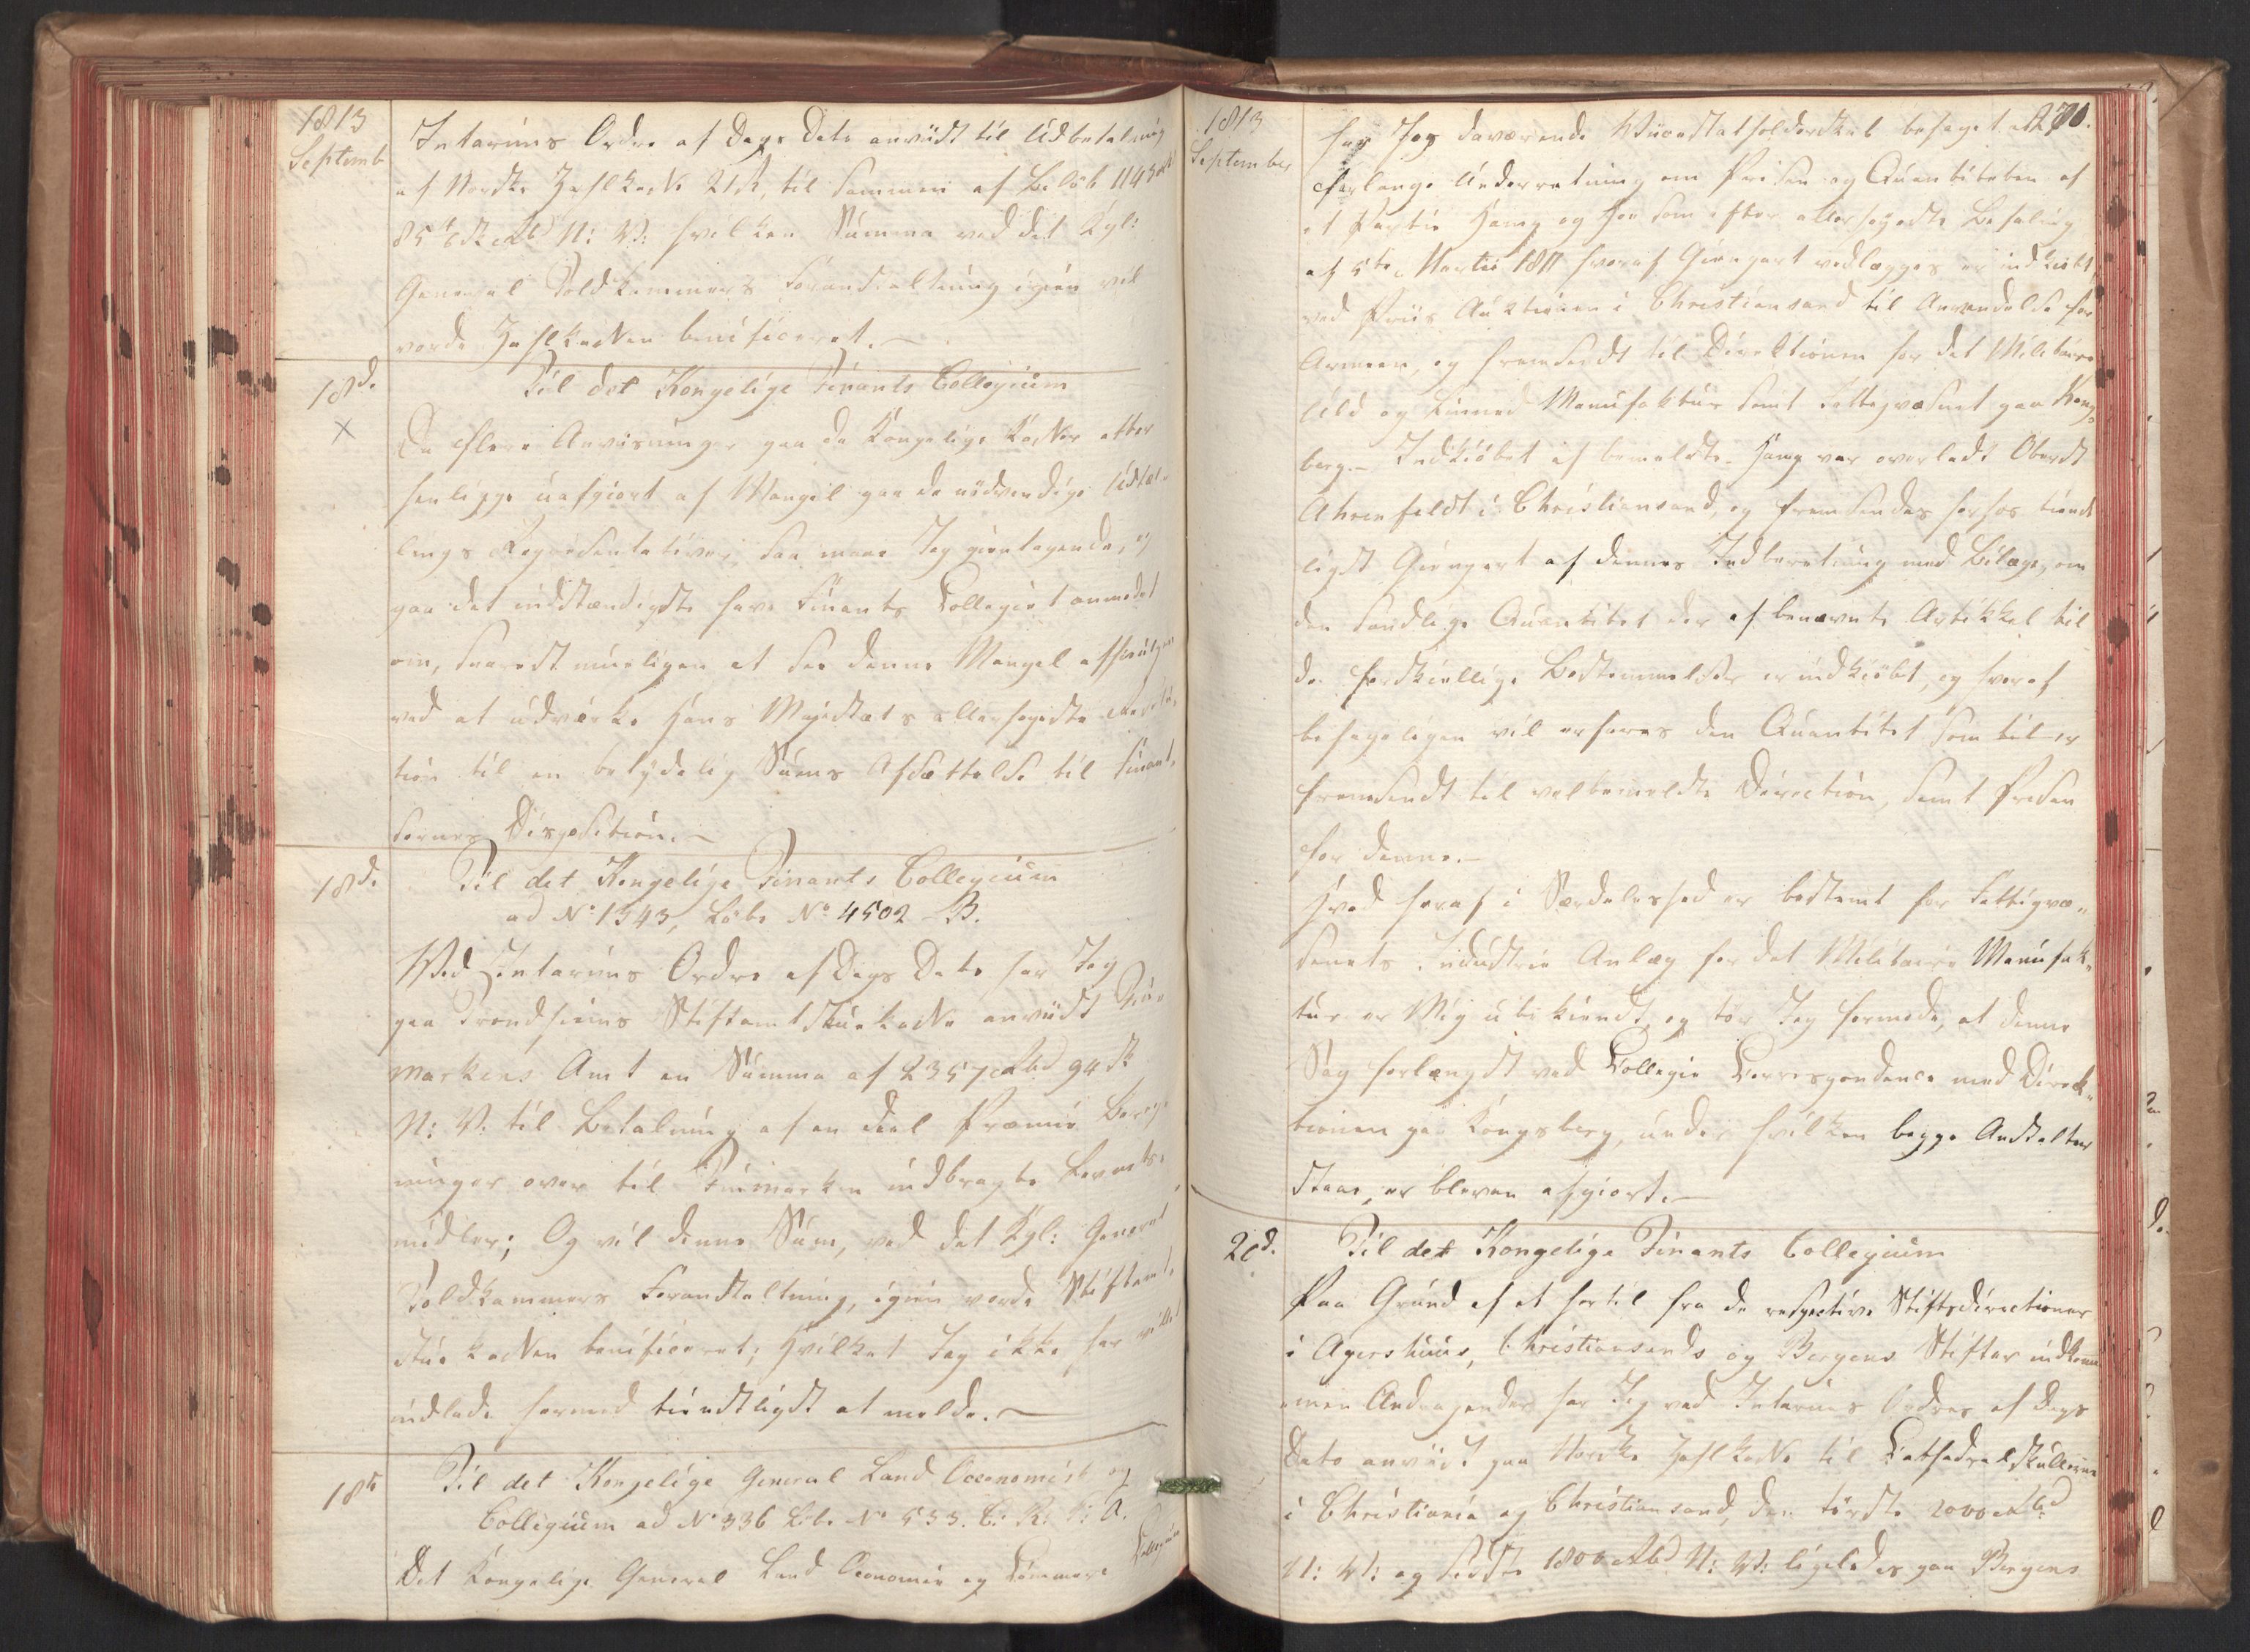 1813
Septemb
Interims Ordre af Dags Dato anviist til Udbetaling
af Norske Zahlkasse 21 R, til sammen af Beløb 1143
85 1/6 sk Rbd N: V: hvilken Summa ved det Kgl:
General Toldkammers Foranstaltning igien vil
vorde Zahlkassen beneficeret.
18d.
Til det Kongelige Finants Collegium
X
Da flere Anvisninger paa de Kongelige Kasser atter
henligge uafgiort af Mangel paa de nødvendige Udtæl-
lings Repræsentativer, saa maae Jeg gientagende, og
paa det indstændigste have Finants Collegiet anmodet
om, snarest mueligen at see denne Mangel afhiulpen
ved at udvirke Hans Majestæts allerhøieste Resolu-
tion til en betydelig Sums Afsættelse til Finant-
sernes Disposition.
18d.
Til det Kongelige Finants Collegium
ad No 1343, Løbe No 4502 B.
Ved Interims Ordre af Dags Dato har Jeg
paa Trondhiems Stiftamtstuekasse anviist Fin-
markens Amt en Summa af 2357 Rbd 94 sk
N: V. til Betaling af en deel Præmie Bereg-
ninger over til Finmarken indbragte Levnets-
midler; Og vil denne Sum, ved det Kgl: General
Toldkammers Foranstaltning, igien vorde Stiftamt-
stuekassen beneficeret; Hvilket Jeg ikke har villet
indlade hermed tienstligst at melde.
18de
Til det Kongelige General Land Oeconomie og
Collegium ad No 336 Løbe No 533. C: K: A.
Det Kongelige General Land Oeconomie og Commerce Collegium
1813
September
270.
har Jeg daværende Vicestatholderskab behaget at
forlange Underretning om Prisen og Quantiteten af
et Partie Hamp og Hør som efter allerhøieste Befaling
af 5te Martii 1811 hvoraf Gienpart vedlægges er indkiøbt
ved Priis Auktionen i Christiansand til Anvendelse for
Armeen, og fremsendt til Direktionen for det Militaire
Uld og Linned Manufaktur samt Fattigvæsnet paa Kongs-
berg. Indkiøbet af bemeldte Hamp var overladt Oberst
Ahrenfeldt i Christiansand, og fremsendes herhos tienst-
ligst Gienpart af dennes Indberetning med Bilage, om
den samtlige Quantitet der af benævnte Artikkel til
de forskiellige Bestemmelser er indkiøbt, og hvoraf
behageligen vil erfares den Quantitet som til er
fremsendt til velbemeldte Direction, samt Prisen
for denne.
Hvad heraf i Særdeleshed er bestemt for Fattigvæ-
senets Industrie Anlæg for det Militaire Manufak-
tur er Mig ubekiendt, og tør Jeg formode, at denne
Sag forlængst ved Collegie Correspondence med Direk-
tionen paa Kongsberg, under hvilken begge Anstalter
staae, er bleven afgiort.
20d.
Til det Kongelige Finants Collegium
Paa Grund af et hertil fra de respective Stiftsdirectioner
i Agershuus, Christiansands og Bergens Stifter indkom-
men Andragender har Jeg ved Interims Ordres af Dags
Dato anviist paa Norske Zahlkasse til Cathedralskolerne
i Christiania og Christiansand, den første 2000 Rbd
N: V: og sidste 1800 Rbd N: V: ligeledes paa Bergens